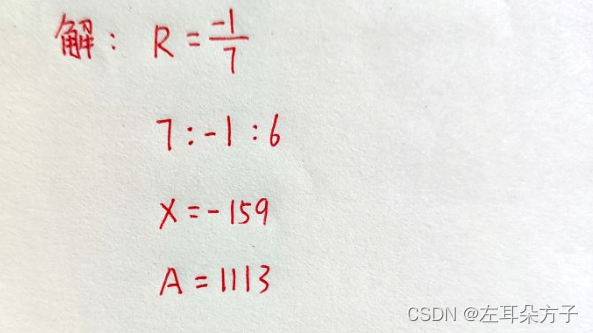 解： R = \frac{-1}{7}
7 : -1 : 6
X = -159
A = 1113
CSDN @左耳朵方子